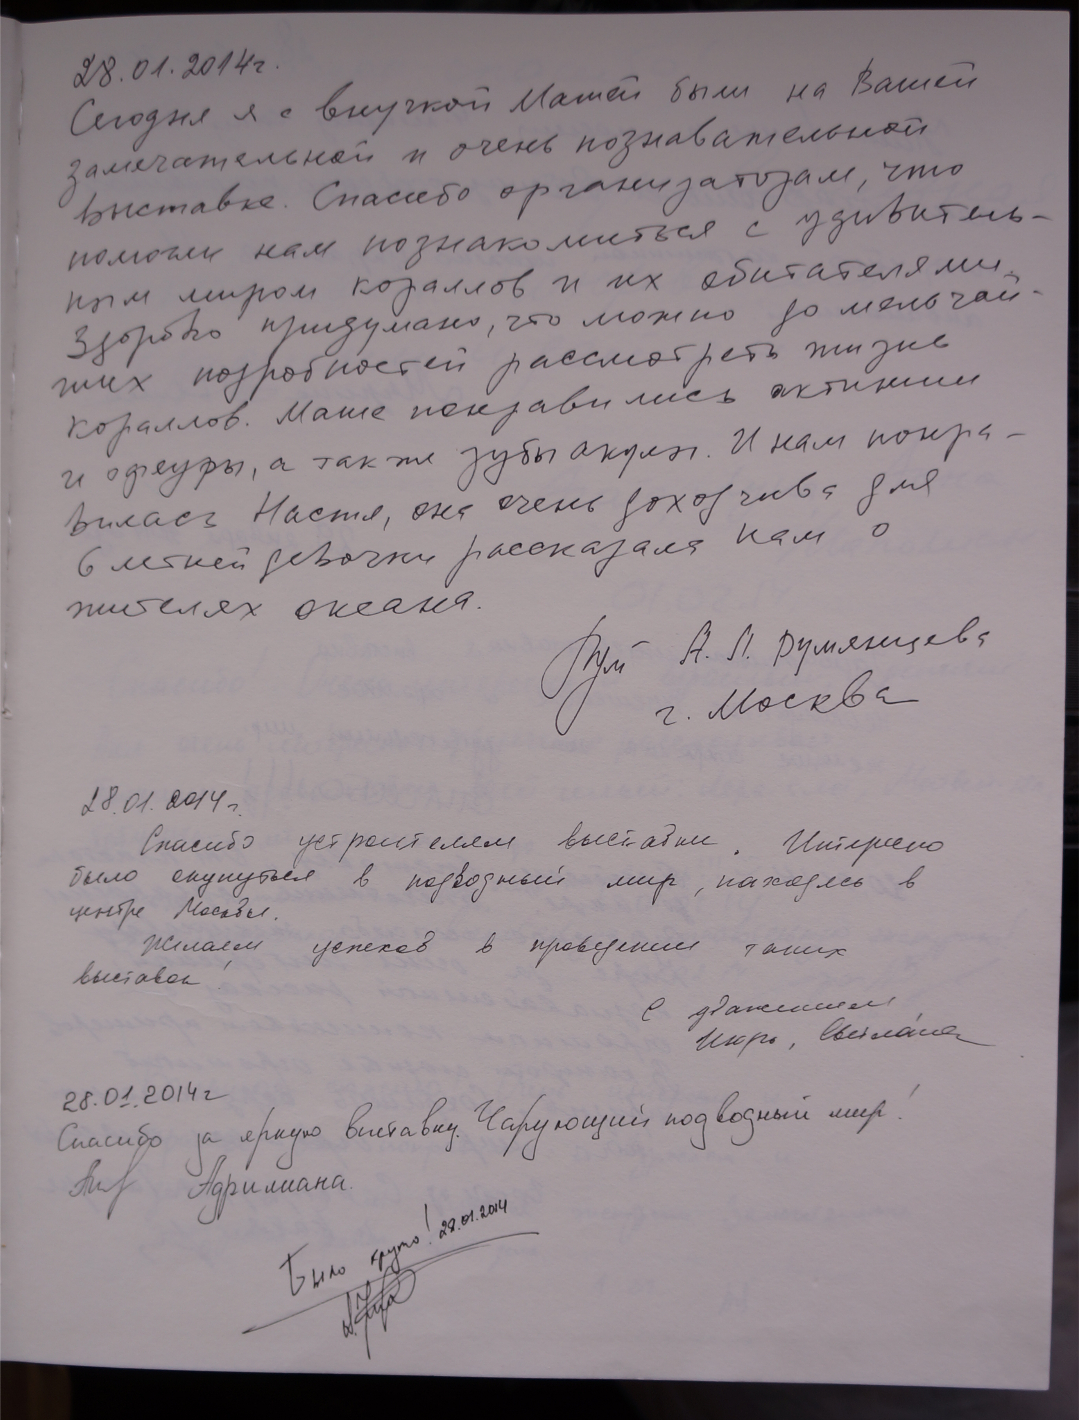 28.01.2014г.
Сегодня я с внучкой Машей были на Вашей
замечательной и очень познавательной
выставке. Спасибо организаторам, что
помогли нам познакомиться с удивитель-
ным миром кораллов и их обитателями.
Здорово придумано, что можно до мельчай-
ших подробностей рассмотреть жизнь
кораллов. Маше понравились актинии
и офиуры, а также зубы акулы. И нам понра-
вилась Настя, она очень доходчива для
6 летней девочки рассказала нам о
жителях океана.
А. Л. Румянцева
г. Москва
28.01.2014г.
Спасибо устроителям выставки. Интересно
было окунуться в подводный мир, находясь в
центре Москвы.
Желаем успехов в проведении таких
выставок!
С уважением
Игорь, Светлана
28.01.2014г
Спасибо за яркую выставку. Чарующий подводный мир!
Адрилиана.
Было круто! 28.01.2014